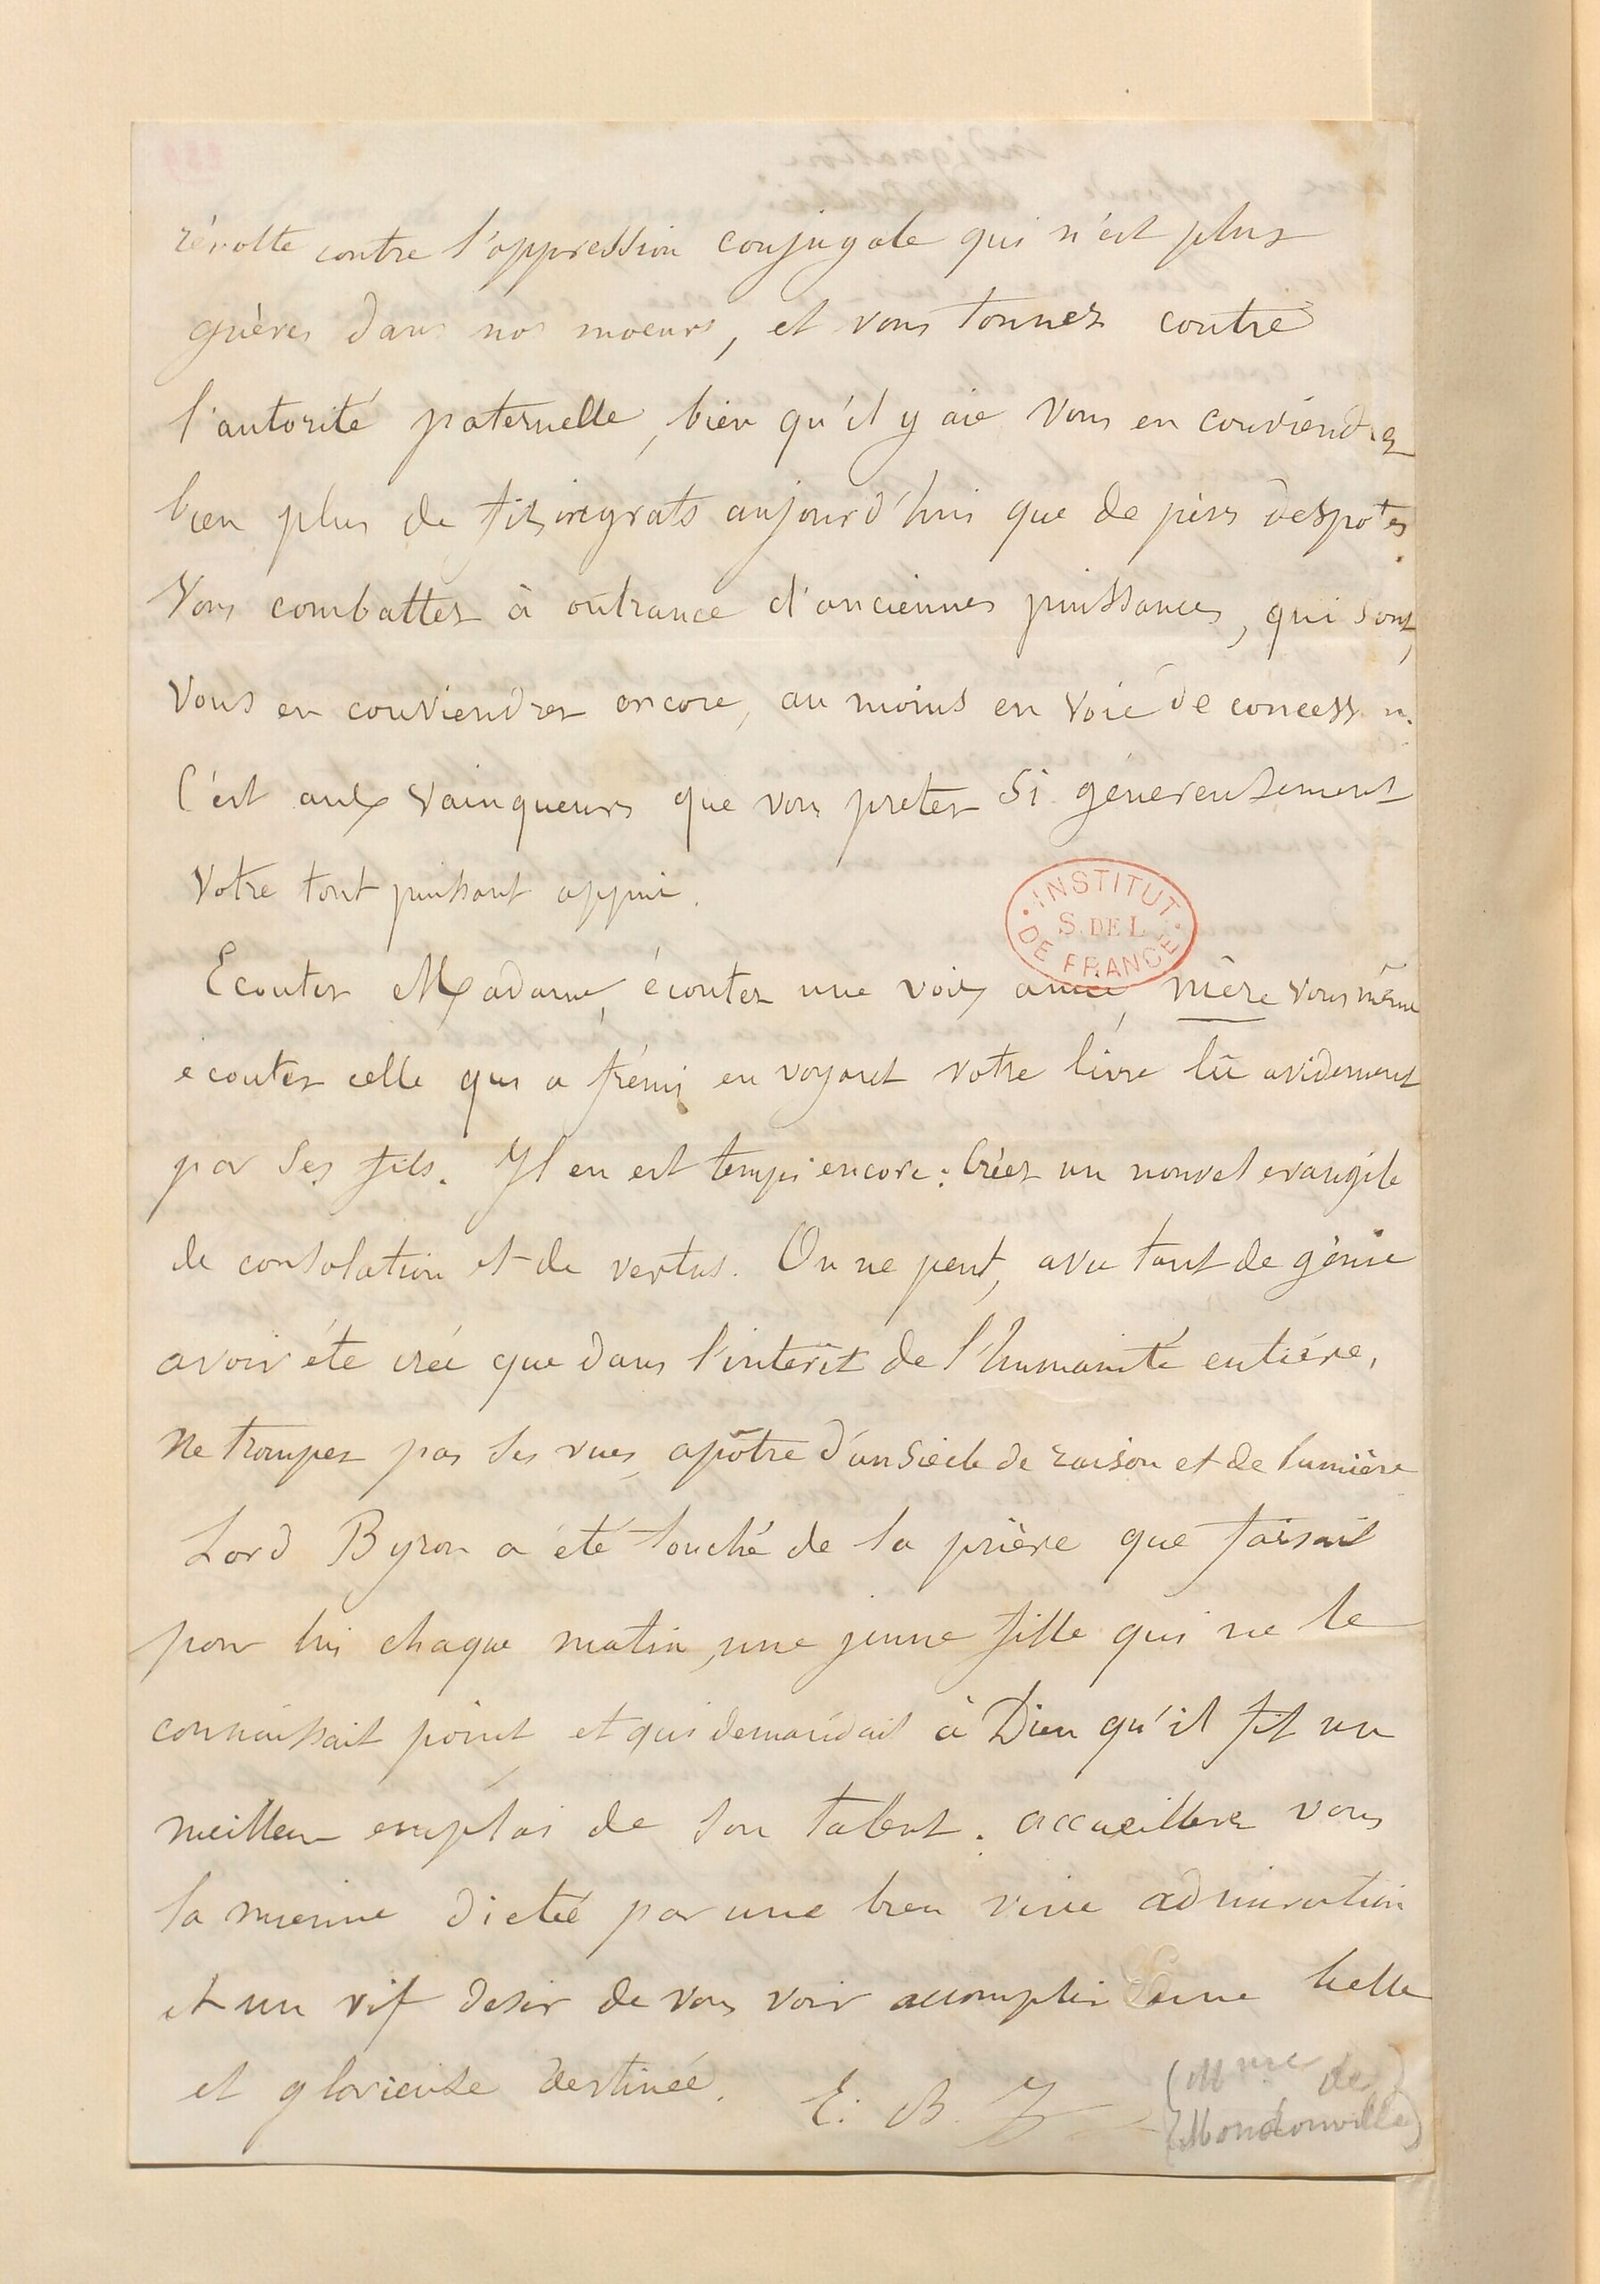 révolte contre l'oppression conjugale qui n'est plus
guères dans nos moeurs, et vous tonnez contre
l'autorité paternelle, bien qu'il y aie vous en conviendrez
bien plus de fils ingrats aujourd'hui que de pères despotes.
Vous combattez à outrance d'anciennes puissances, qui sont,
vous en conviendrez encore, au moins en voie de concession.
C'est aux vainqueurs que vous pretez si généreusement
votre tout puissant appui.
INSTITUT
S. DE L.
DE FRANCE
Ecoutez Madame, écoutez une voix amie, mère vous même
ecoutez celle qui a frémi en voyant votre livre lû avidement
par ses fils. Il en est temps encore : Créez un nouvel evangile
de consolation et de vertus. On ne peut, avec tant de génie
avoir été créé que dans l'interêt de l'humanité entière,
Ne trompez pas ses vues, apôtre d'un siècle de raison et de lumière
Lord Byron a été touché de la prière que faisait
pour lui chaque matin, une jeune fille qui ne le
connaissait point et qui demandait à Dieu qu'il fit un
meilleur emploi de son talent. accueillerez vous
la mienne dictée par une bien vive admiration
et un vif desir de vous voir accomplir une belle
et glorieuse destinée. E. B.
(Mme de
Mondonville)